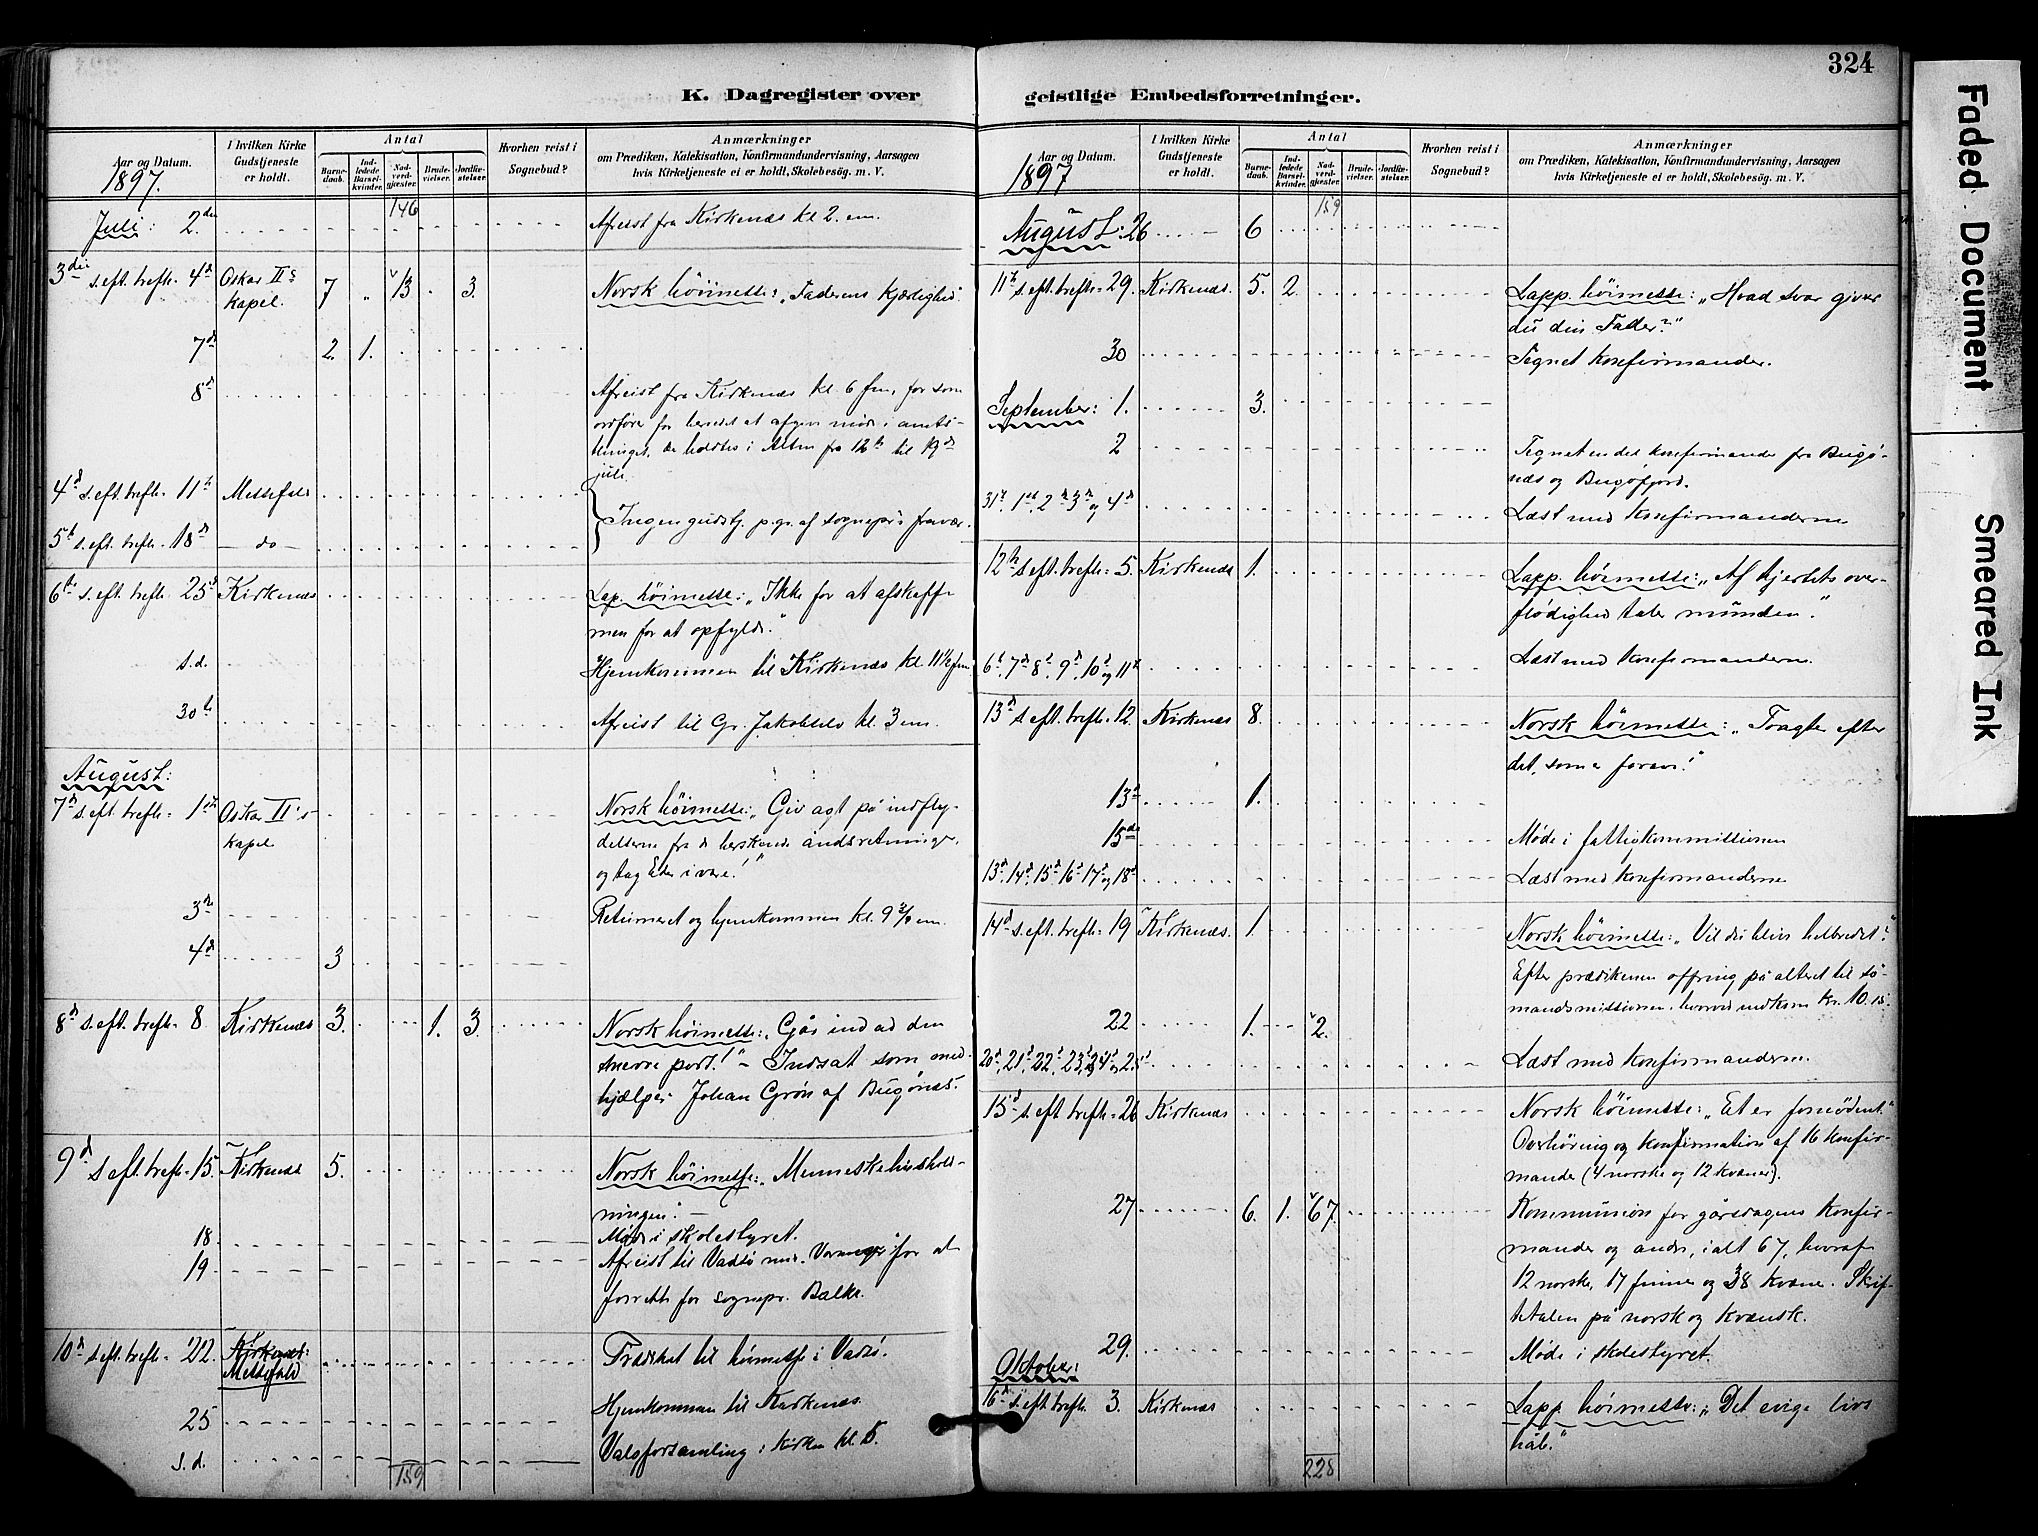 324
K. Dagregister over
geistlige Embedsforretninger.
Aar og Datum.
1897.
I hvilken Kirke Gudstjeneste er holdt.
Antal
Barne-daab.
Ind-ledede Barsel-kvinder.
Nad-verd-gjæster.
Brude-vielser.
Jordfæ-stelser.
Hvorhen reist i Sognebud?
Anmærkninger
om Prædiken, Katekisation, Konfirmandundervisning, Aarsagen
hvis Kirketjeneste ei er holdt, Skolebesøg. m. V.
146
Juli: 2den Afreist fra Kirkenæs kl 2. em.
3die s. eft. trefh. 4d Oskar II's kapel. 7 „ 13 3. Norsk höimesse: „Faderens kjærlighed.
7d 2. 1.
8d Afreist fra Kirkenæs kl 6 fm, for som
ordfører for herredet at afgive møde i amts-
thinget, der holdtes i Alten fra 12te til 19d
juli.
4d s. eft. trefh. 11t Messefald
Ingen gudstj. p. gr. af sognepr's fravær.
5t s. eft. trefh. 18d — do —
6te s. eft. trefh. 25d Kirkenæs Lap. höimesse: „Ikke for at afskaffe
men for at opfylde."
s.d. Hjemkommen til Kirkenæs kl. 11½ fm
30te Afreist til Gr. Jakobselv kl. 3 em.
August:
7d s. eft. trefh. 1ste Oskar II's kapel Norsk höimesse: „Giv agt på indfly-
delserne fra de herskende åndsretninger,
og tag Eder i vare!"
3die Returneret og hjemkommen kl. 9 em.
4d 3
8d s. eft. trefh. 8. Kirkenæs 3. 1. 3. Norsk höimesse: „Går ind ad den
snevre port!" – Indsat som med-
hjælper Johan Grön af Bugönæs.
9d s eft. trefh. 15. Kirkenæs 5. Norsk höimesse: „Menneskehushold-
ningen". –
18. Møde i skolestyret.
19 Afreist til Vadsö med „Varanger" for at
forrette for sognepr. Balke.
10d s. eft. trefh. 22. Kirkenæs: Messefald Prædiket til höimesse i Vadsö.
25 Hjemkommen til Kirkenæs.
s.d. Valgforsamling i Kirken kl. 5.
159
Aar og Datum.
1897
I hvilken Kirke Gudstjeneste er holdt.
Antal
Barne-daab.
Ind-ledede Barsel-kvinder.
Nad-verd-gjæster.
Brude-vielser.
Jordfæ-stelser.
Hvorhen reist i Sognebud?
Anmærkninger
om Prædiken, Katekisation, Konfirmandundervisning, Aarsagen
hvis Kirketjeneste ei er holdt, Skolebesøg. m. V.
159
August: 26 6
11te s. eft. trefh. 29. Kirkenæs. 5. 2. Lapp. höimesse: „Hvad svar giver
du din Fader?"
30 Tegnet konfirmander.
September: 1. 3.
2 Tegnet en del konfirmander fra Bugö-
næs og Bugöfjord.
31te, 1ste, 2den 3die og 4d Læst med konfirmanderne
12te s eft. trefh. 5. Kirkenæs 1. Lapp. höimesse: „Af hjertets over-
flödighed taler munden".
6t, 7d, 8t, 9d, 10d og 11te Læst med konfirmanderne.
13d s. eft. trefh. 12. Kirkenæs 8. Norsk höimesse: „Tragter efter
det, som er foroven!"
13d 1.
15de Møde i fattigkommissionen
13d, 14d, 15d, 16d, 17d og 18d Læst med konfirmanderne
14d s. eft. trefh. 19 Kirkenæs. 1. Norsk höimesse: „Vil du blive helbredet?"
Efter prædikenen ofring på alteret til sö-
mandsmissionen, hvorved indkom kr. 10.15.
22 1. 2.
20d, 21d, 22d, 23d, 24d og 25d Læst med konfirmanderne.
15d s. eft trefh. 26 Kirkenæs Norsk höimesse: „Et er fornödent."
Overhöring og konfirmation af 16 konfir-
mander (4 norske og 12 kvæner).
27 6. 1. 67. Kommunion for gårsdagens konfir-
mander og andre, ialt 67, hvoraf
12 norske, 17 finner og 38 kvæner. Skrif-
tetalen på norsk og kvænsk.
29. Møde i skolestyret.
Oktober:
16d s. eft. trefh. 3. Kirkenæs Lapp. höimesse: „Det evige livs
håb."
228
Faded Document
Smeared Ink